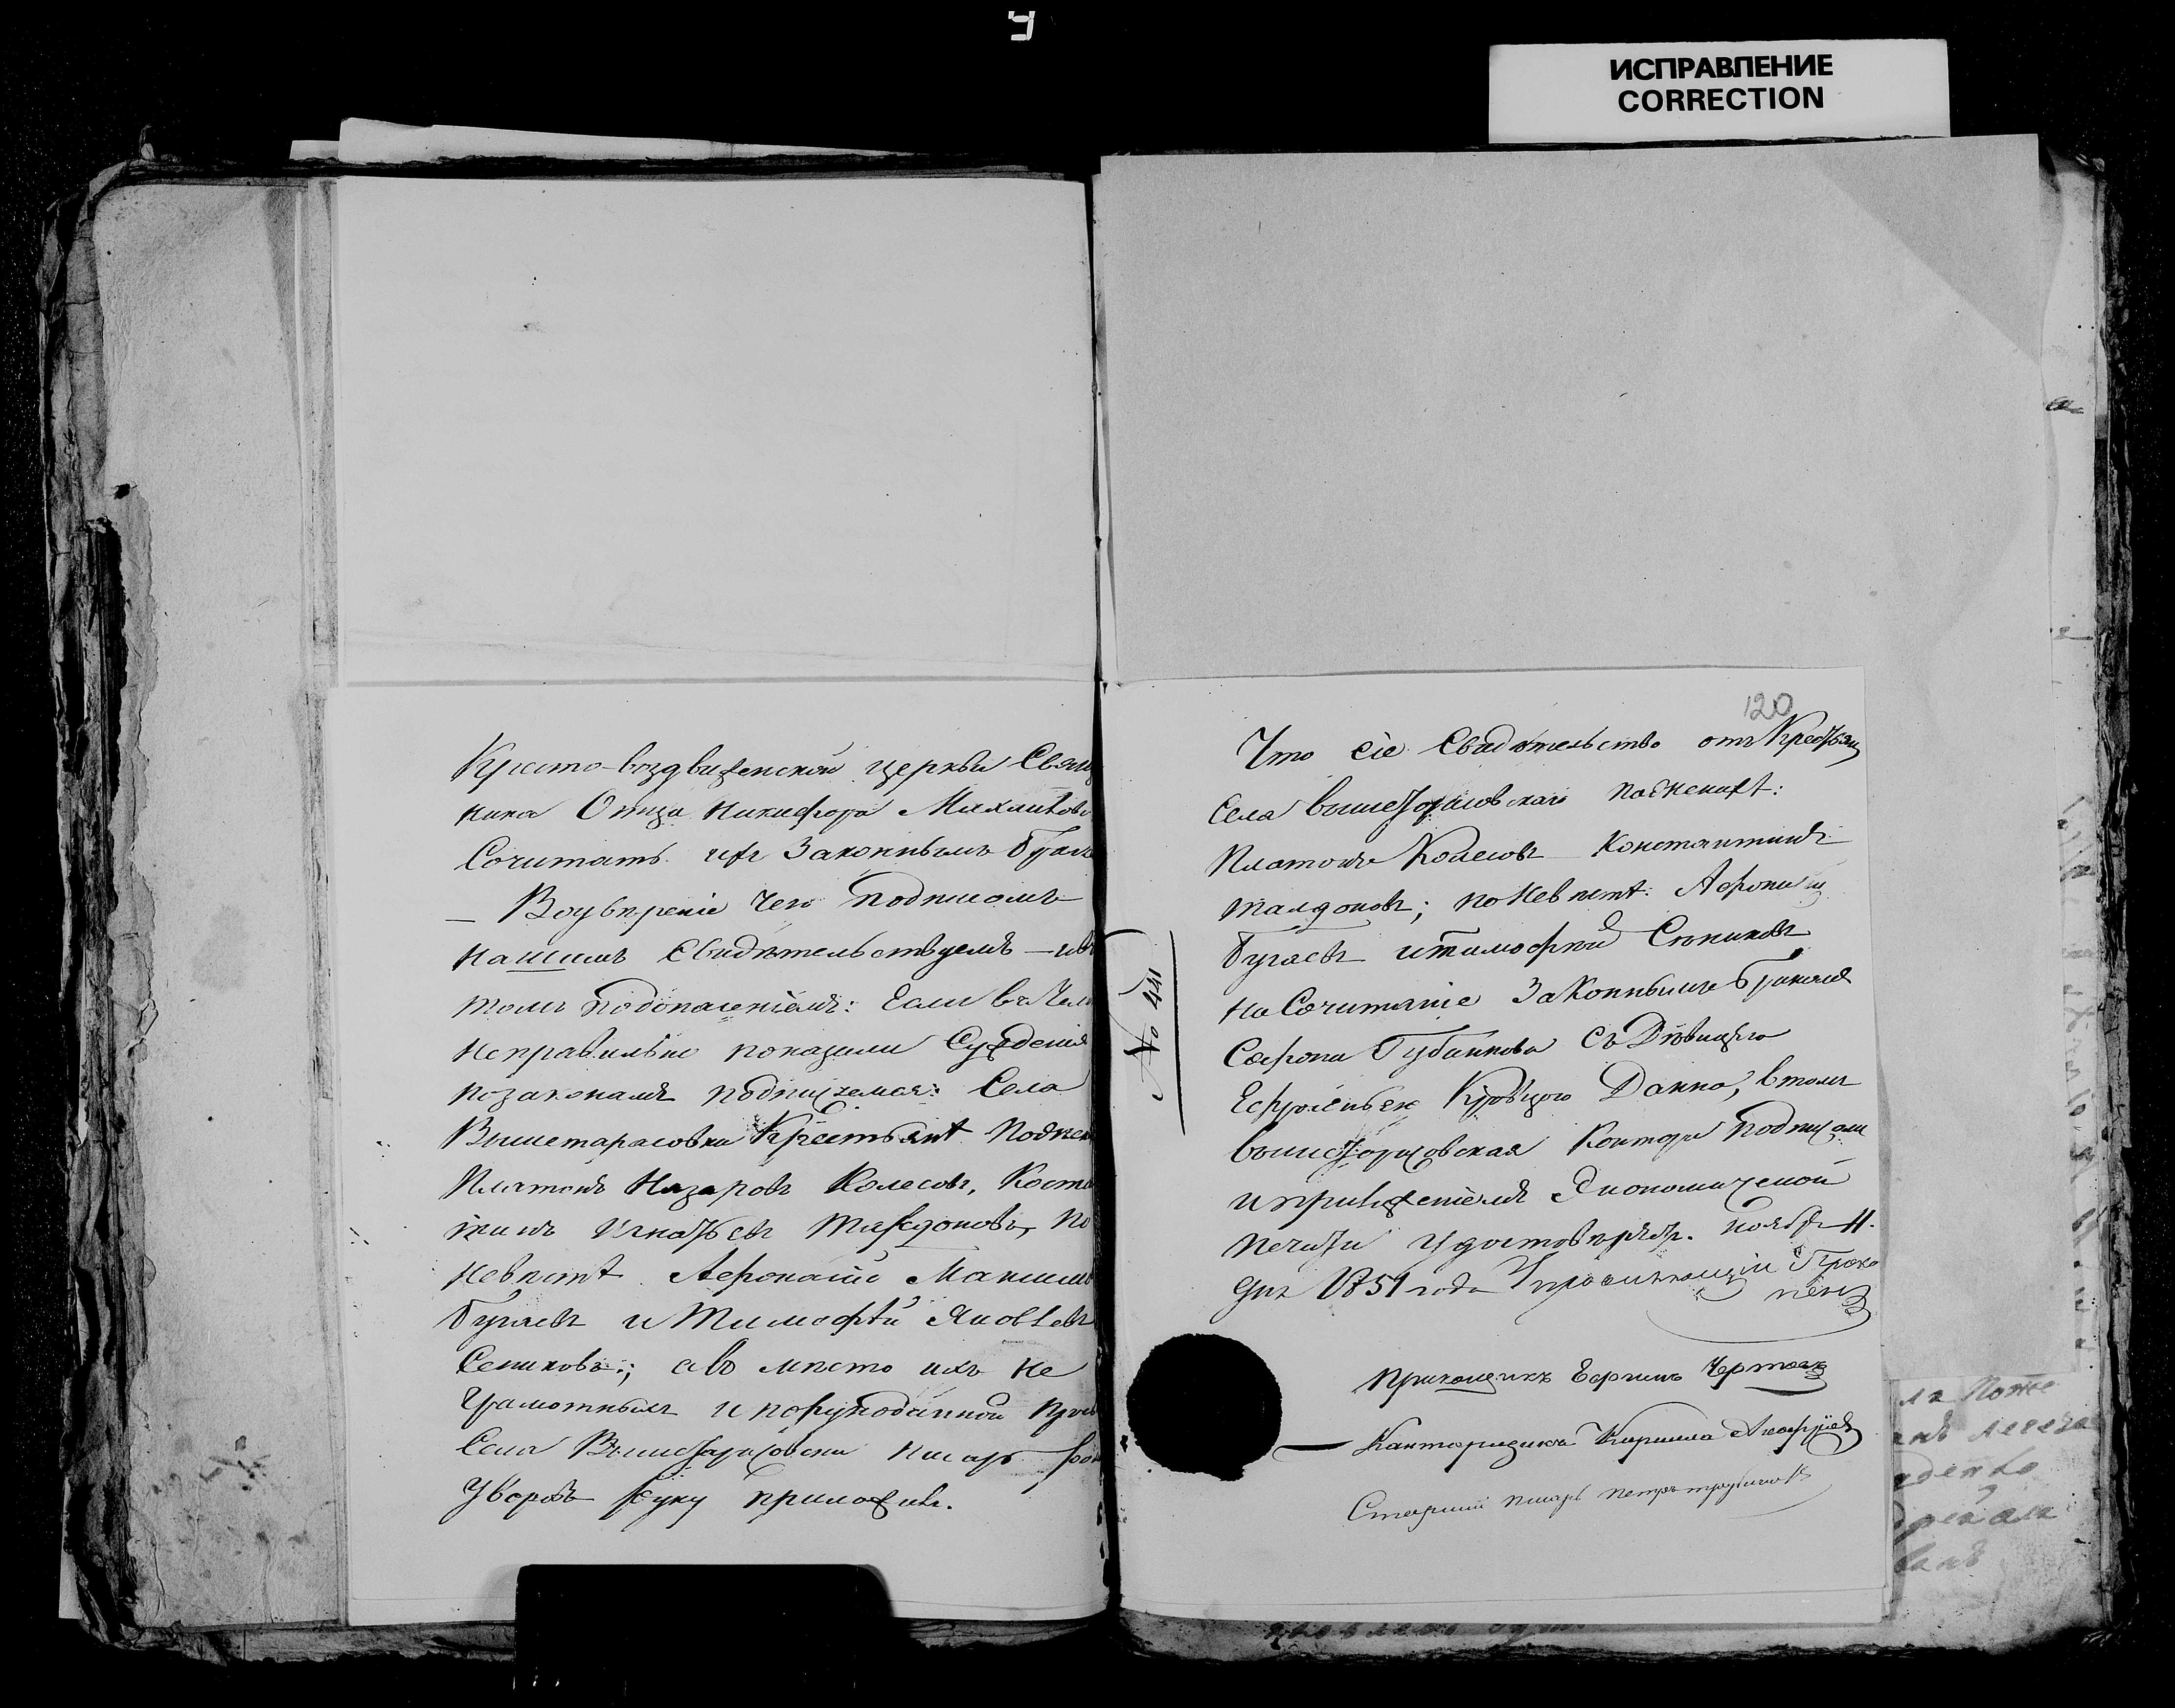 ИСПРАВЛЕНИЕ
CORRECTION
Кресто-воздвиженской церкви Свящ
ника Отца Никифора Михаилово
Сочитать ихъ Законнымъ Брак
— Воувѣреніе Чего Подписомъ
нашимъ Свидѣтельствуемъ —
томъ подопасеніемъ: Если въ Чем
неправильно показали Сужденія
позаконамъ подлежемся: Села
Вышетарасовки Крестьянѣ Поджен
Платонъ Назаровъ Колесовъ, Конст
тинъ Игнатьевъ Майдоновъ, По
Невестѣ Афонасіи Максимов
Бугаевъ и Тимофѣй Яковлевъ
Сениковъ; аво мѣсто ихъ Не
Грамотныхъ и порукоданной Прозь
Села Вышетарасовки писарь
Уворовъ Руку приложилъ.
120
Что сіе Свидѣтельство отъ Крестьян
Села Вышетарасовскаго Подженихѣ:
Платонъ Колесовъ Константинъ
Майдоновъ; по Невѣстѣ: Афонасіи
Бугаевъ и Тимофѣй Сѣниковъ
На Сочитаніе Законнымъ Бракомъ
Сафона Губаннова Съ Дѣвицею
Дано, в томъ
Вышетарасовская Контора Подписом
и приложеніемъ Экономической
Печати Удостовѣряетъ. Ноября 11.
дня 1851 года Управляющій
№ 441
Прикащикъ Ефимъ Чертокъ
Канторщикъ Кирилла
Старшій писарь Петръ